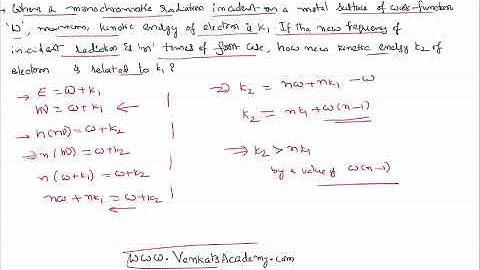 When a monochromatic radiation incident on a metal surface of work-function
'ω', maximum, kinetic energy of electron is k₁. If the new frequency of
incident radiation is 'n' times of first case, how new kinetic energy k₂ of
electron is related to k₁?
→ E = ω + k₁
hν = ω + k₁ ←
→ n(hν) = ω + k₂
⇒ n(hν) = ω + k₂
n(ω + k₁) = ω + k₂
nω + nk₁ = ω + k₂
⇒ k₂ = nω + nk₁ - ω
k₂ = nk₁ + ω(n-1)
⇒ k₂ > nk₁
by a value of ω(n-1)
www.VenkatsAcademy.com